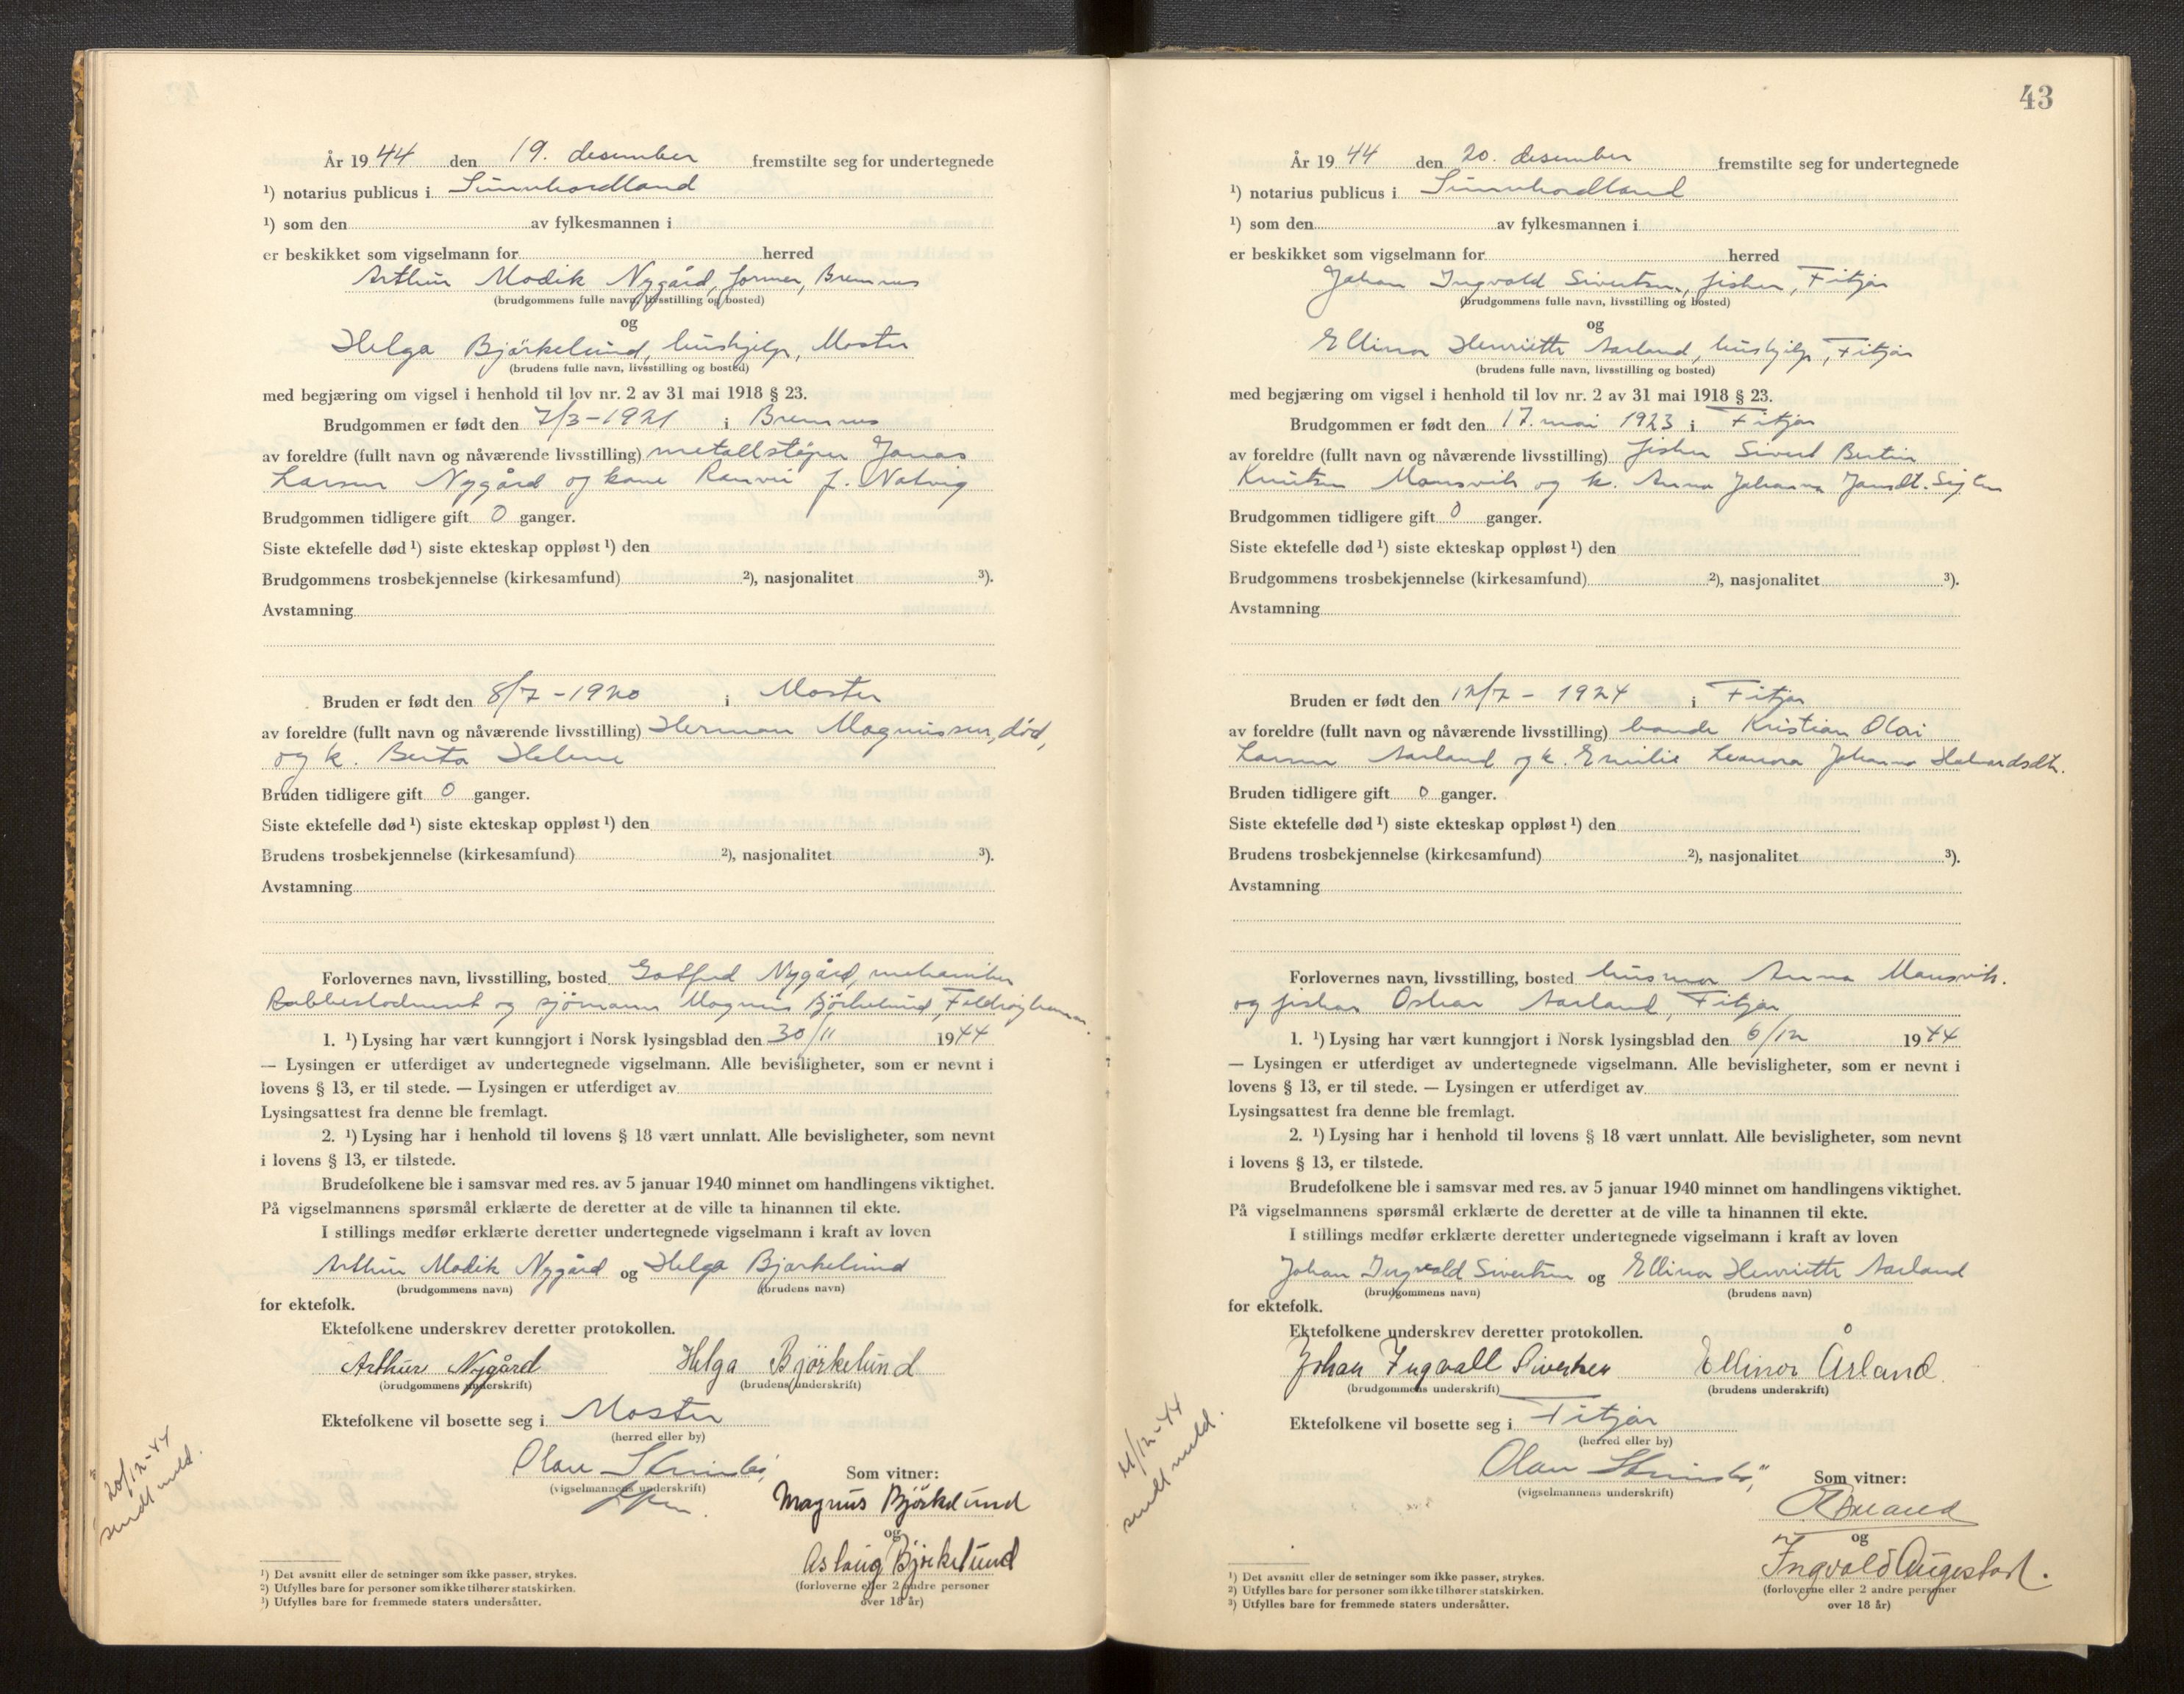 År 1944 den 19. desember fremstilte seg for undertegnede
¹) notarius publicus i Sunnhordland
¹) som den av fylkesmannen i
er beskikket som vigselmann for herred
Arthur Modik Nygård, former, Bremnes
(brudgommens fulle navn, livsstilling og bosted)
og
Helga Bjørkelund, hushjelp, Moster
(brudens fulle navn, livsstilling og bosted)
med begjæring om vigsel i henhold til lov nr. 2 av 31 mai 1918 § 23.
Brudgommen er født den 7/3-1921 i Bremnes
av foreldre (fullt navn og nåværende livsstilling) metallstøper Jonas
Larsen Nygård og kone Ranvei J. Natvig
Brudgommen tidligere gift 0 ganger.
Siste ektefelle død ¹) siste ekteskap oppløst ¹) den
Brudgommens trosbekjennelse (kirkesamfund) ²), nasjonalitet ³).
Avstamning
Bruden er født den 8/7-1920 i Moster
av foreldre (fullt navn og nåværende livsstilling) Herman Magnussen, død,
og k. Berta Helene
Bruden tidligere gift 0 ganger.
Siste ektefelle død ¹) siste ekteskap oppløst ¹) den
Brudens trosbekjennelse (kirkesamfund) ²), nasjonalitet ³).
Avstamning
Forlovernes navn, livsstilling, bosted Gotfred Nygård, mekaniker
og sjömann Magnus Björkelund,
1. ¹) Lysing har vært kunngjort i Norsk lysingsblad den 30/11 1944
— Lysingen er utferdiget av undertegnede vigselmann. Alle bevisligheter, som er nevnt i
lovens § 13, er til stede. — Lysingen er utferdiget av
Lysingsattest fra denne ble fremlagt.
2. ¹) Lysing har i henhold til lovens § 18 vært unnlatt. Alle bevisligheter, som nevnt
i lovens § 13, er tilstede.
Brudefolkene ble i samsvar med res. av 5 januar 1940 minnet om handlingens viktighet.
På vigselmannens spørsmål erklærte de deretter at de ville ta hinannen til ekte.
I stillings medfør erklærte deretter undertegnede vigselmann i kraft av loven
Arthur Modik Nygård og Helga Bjørkelund
(brudgommens navn) (brudens navn)
for ektefolk.
Ektefolkene underskrev deretter protokollen.
Arthur Nygård Helga Björkelund
(brudgommens underskrift) (brudens underskrift)
Ektefolkene vil bosette seg i Moster
(herred eller by)
Olav
(vigselmannens underskrift)
Som vitner:
Magnus Björkelund
og
Aslaug Bjørkelund
(forloverne eller 2 andre personer
over 18 år)
20/12-44
sendt meld.
¹) Det avsnitt eller de setninger som ikke passer, strykes.
²) Utfylles bare for personer som ikke tilhører statskirken.
³) Utfylles bare for fremmede staters undersåtter.
43
År 1944 den 20. desember fremstilte seg for undertegnede
¹) notarius publicus i Sunnhordland
¹) som den av fylkesmannen i
er beskikket som vigselmann for herred
Johan Ingvald Sivertsen, fisker, Fitjar
(brudgommens fulle navn, livsstilling og bosted)
og
Ellinor Henriette Aarland, hushjelp, Fitjar
(brudens fulle navn, livsstilling og bosted)
med begjæring om vigsel i henhold til lov nr. 2 av 31 mai 1918 § 23.
Brudgommen er født den 17. mai 1923 i Fitjar
av foreldre (fullt navn og nåværende livsstilling) fisker Sivert Bertin
Knutsen Mansvik og k. Anna Johanna Jansdt.
Brudgommen tidligere gift 0 ganger.
Siste ektefelle død ¹) siste ekteskap oppløst ¹) den
Brudgommens trosbekjennelse (kirkesamfund) ²), nasjonalitet ³).
Avstamning
Bruden er født den 12/7-1924 i Fitjar
av foreldre (fullt navn og nåværende livsstilling) bonde Kristian Olai
Larsen Aarland og k. Emilie Leonora Johanna Halvardsdt.
Bruden tidligere gift 0 ganger.
Siste ektefelle død ¹) siste ekteskap oppløst ¹) den
Brudens trosbekjennelse (kirkesamfund) ²), nasjonalitet ³).
Avstamning
Forlovernes navn, livsstilling, bosted husmor Anna Mansvik.
og fisker Oskar Aarland, Fitjar
1. ¹) Lysing har vært kunngjort i Norsk lysingsblad den 6/12 1944
— Lysingen er utferdiget av undertegnede vigselmann. Alle bevisligheter, som er nevnt i
lovens § 13, er til stede. — Lysingen er utferdiget av
Lysingsattest fra denne ble fremlagt.
2. ¹) Lysing har i henhold til lovens § 18 vært unnlatt. Alle bevisligheter, som nevnt
i lovens § 13, er tilstede.
Brudefolkene ble i samsvar med res. av 5 januar 1940 minnet om handlingens viktighet.
På vigselmannens spørsmål erklærte de deretter at de ville ta hinannen til ekte.
I stillings medfør erklærte deretter undertegnede vigselmann i kraft av loven
Johan Ingvald Sivertsen og Ellinor Henriette Aarland
(brudgommens navn) (brudens navn)
for ektefolk.
Ektefolkene underskrev deretter protokollen.
Johan Ingvall Sivertsen Ellinor Årland
(brudgommens underskrift) (brudens underskrift)
Ektefolkene vil bosette seg i Fitjar
(herred eller by)
Olav
(vigselmannens underskrift)
Som vitner:
og
Ingvald Augestad.
(forloverne eller 2 andre personer
over 18 år)
21/12-44
sendt meld.
¹) Det avsnitt eller de setninger som ikke passer, strykes.
²) Utfylles bare for personer som ikke tilhører statskirken.
³) Utfylles bare for fremmede staters undersåtter.